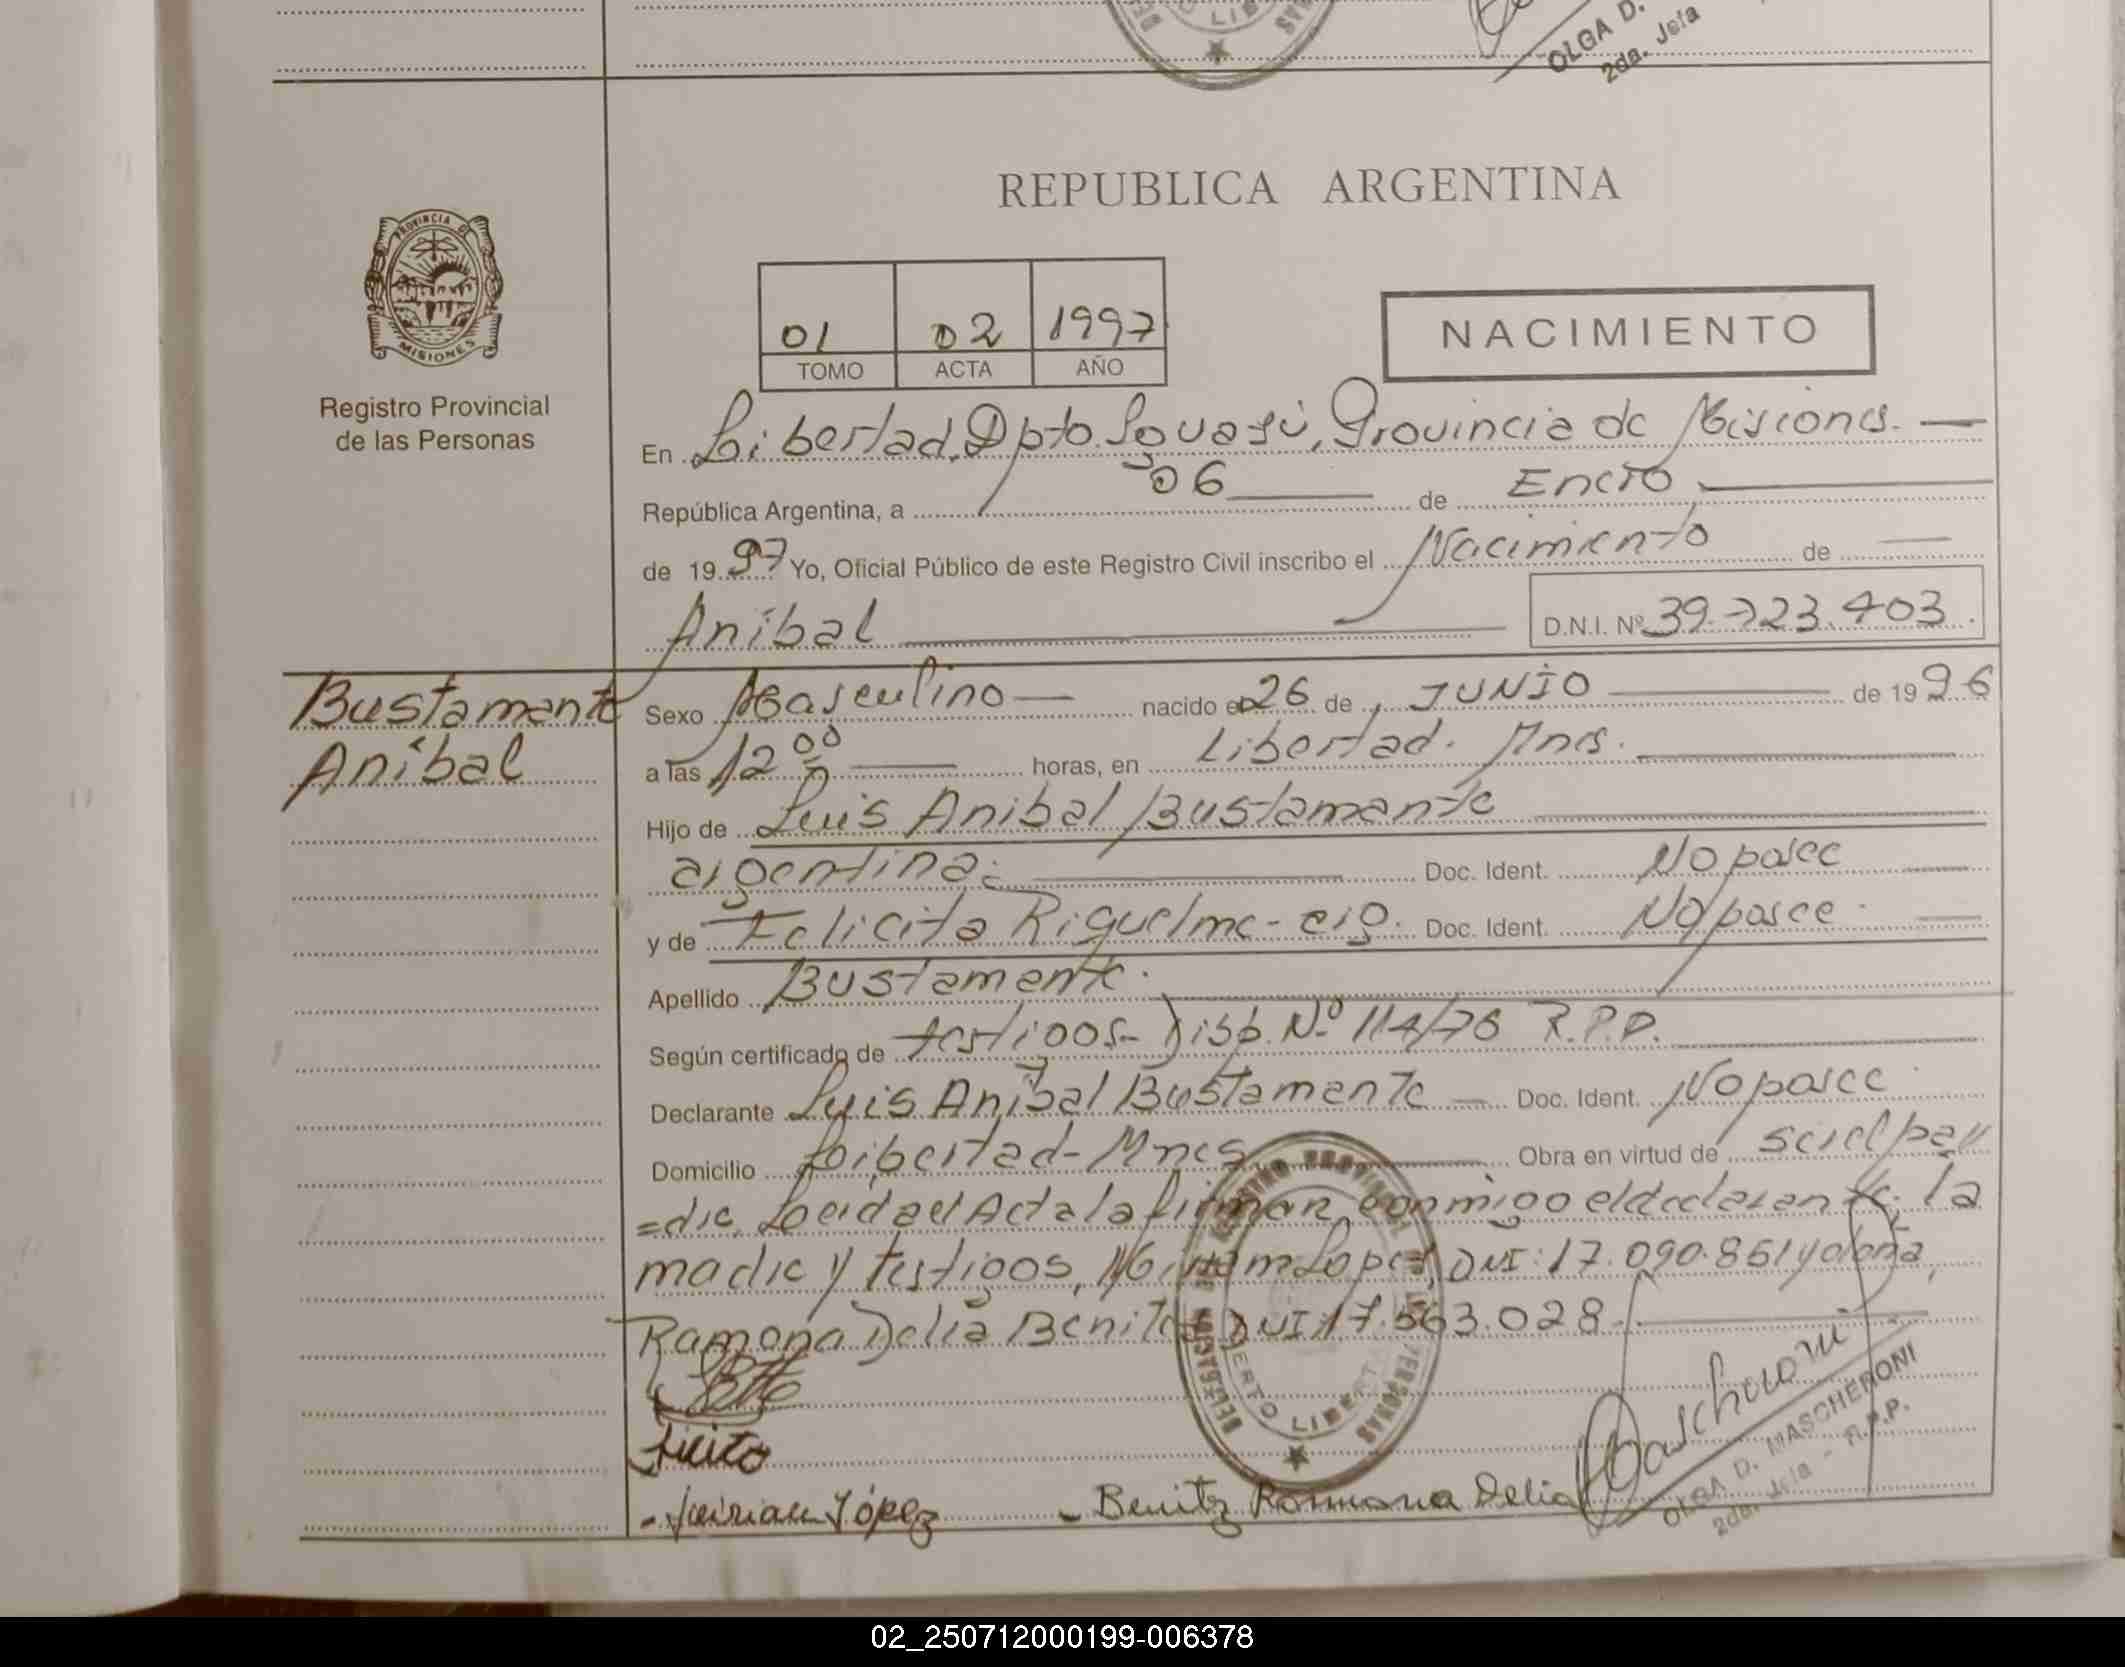 LIB
OLGA D.
2da. Jefa
REPUBLICA ARGENTINA
PROVINCIA DE
MISIONES
Registro Provincial
de las Personas
01 02 1997
TOMO ACTA AÑO
NACIMIENTO
En Libertad, Dpto. Iguazú, Provincia de Misiones.
República Argentina, a 06 de Enero
de 1997 Yo, Oficial Público de este Registro Civil inscribo el Nacimiento de
Aníbal D.N.I. Nº 39.723.403.
Bustamante
Aníbal
Sexo Masculino nacido el 26 de JUNIO de 1996
a las 12 00 horas, en Libertad. Mnes.
Hijo de Luis Anibal Bustamante
argentina: Doc. Ident. No posee
y de Felicita Riquelme - arg. Doc. Ident. No posee.
Apellido Bustamante.
Según certificado de testigos - Disp. Nº 114/76 R.P.P.
Declarante Luis Aníbal Bustamante Doc. Ident. No posee
Domicilio Libertad - Mnes Obra en virtud de ser el pa
=dre, Leída el Acta la firman conmigo el declarante, la
madre y testigos, Miriam Lopez, DNI: 17.090.861 y doña,
Ramona Delia Benitez DNI: 17.563.028.
DELEGACION REGISTRO PROVINCIAL DE LAS PERSONAS
PUERTO LIBERTAD
- Miriam López - Benitz Ramona Delia
Mascheroni
OLGA D. MASCHERONI
2da. Jefa - R.P.P.
02_250712000199-006378